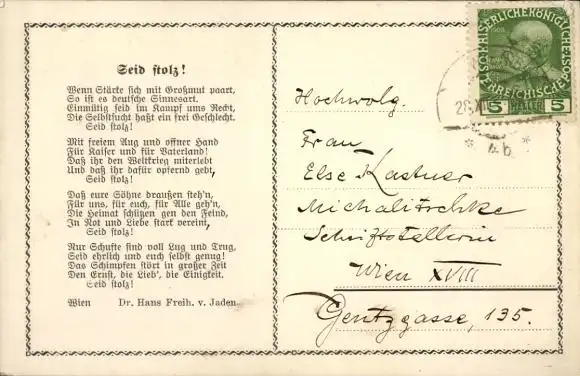 Seid stolz!
Wenn Stärke sich mit Großmut paart,
So ist es deutsche Sinnesart.
Einmütig seid im Kampf ums Recht,
Die Selbstsucht haßt ein frei Geschlecht.
Seid stolz!
Mit freiem Aug und offner Hand
Für Kaiser und für Vaterland!
Daß ihr den Weltkrieg miterlebt
Und daß ihr dafür opfernd gebt,
Seid stolz!
Daß eure Söhne draußen steh'n,
Für uns, für euch, für Alle geh'n,
Die Heimat schützen gen den Feind,
In Not und Liebe stark vereint,
Seid stolz!
Nur Schufte sind voll Lug und Trug,
Seid ehrlich und euch selbst genug!
Das Schimpfen stört in großer Zeit
Den Ernst, die Lieb', die Einigkeit.
Seid stolz!
Wien Dr. Hans Freih. v. Jaden.
1908
5 HELLER 5
* 4b *
Hochwolg.
Frau
Else Kastner
Michalitschke
Schriftstellerin
Wien XVIII
Gentzgasse, 135.